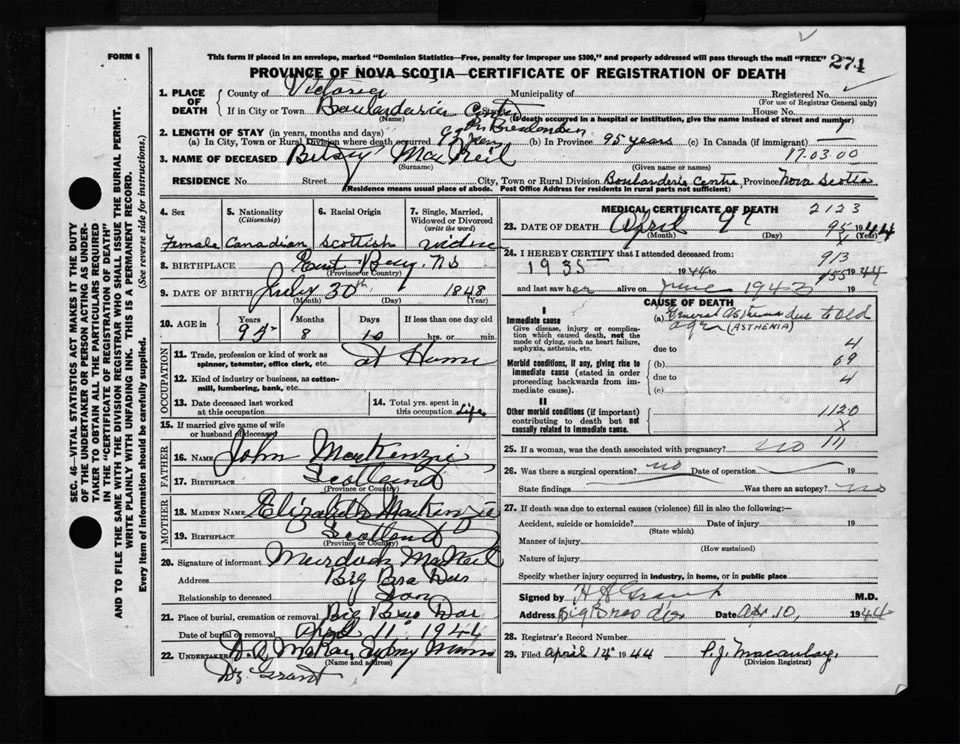 FORM 6
This form if placed in an envelope, marked "Dominion Statistics—Free, penalty for improper use $300," and properly addressed will pass through the mail "FREE" 271
PROVINCE OF NOVA SCOTIA—CERTIFICATE OF REGISTRATION OF DEATH
1. PLACE OF DEATH
County of Victoria Municipality of Registered No.
(For use of Registrar General only)
If in City or Town Boularderie Centre Street House No.
(Name) (If death occurred in a hospital or institution, give the name instead of street and number)
2. LENGTH OF STAY (in years, months and days)
(a) In City, Town or Rural Division where death occurred (b) In Province 95 years (c) In Canada (if immigrant)
3. NAME OF DECEASED Betsy MacNeil 17.03.00
(Surname) (Given name or names)
RESIDENCE No. Street City, Town or Rural Division Boularderie Centre, Province Nova Scotia
(Residence means usual place of abode. Post Office Address for residents in rural parts not sufficient)
4. Sex
Female
5. Nationality
(Citizenship)
Canadian
6. Racial Origin
Scottish
7. Single, Married, Widowed or Divorced
(write the word)
widow
8. BIRTHPLACE East Bay, NS
(Province or Country)
9. DATE OF BIRTH July 30th 1848
(Month) (Day) (Year)
10. AGE in Years Months Days If less than one day old
95 8 10 hrs. or min.
OCCUPATION
11. Trade, profession or kind of work as spinner, teamster, office clerk, etc. at Home
12. Kind of industry or business, as cotton-mill, lumbering, bank, etc.
13. Date deceased last worked at this occupation
14. Total yrs. spent in this occupation Life
15. If married give name of wife or husband of deceased
FATHER
16. NAME John MacKenzie
17. BIRTHPLACE Scotland
(Province or Country)
MOTHER
18. MAIDEN NAME Elizabeth MacKenzie
19. BIRTHPLACE Scotland
(Province or Country)
20. Signature of informant Murdoch MacNeil
Address Big Bras Dor
Relationship to deceased Son
21. Place of burial, cremation or removal Big Bras Dor
Date of burial or removal April 11, 1944
22. UNDERTAKER McKay, Sydney Mines
(Name and address)
Dr. Grant
MEDICAL CERTIFICATE OF DEATH 2123
23. DATE OF DEATH April 9th 95 1944
(Month) (Day) (Year)
X
24. I HEREBY CERTIFY that I attended deceased from 913
1935 1944 to 155 1944
and last saw her alive on June 1943 19
CAUSE OF DEATH
I
Immediate cause
Give disease, injury or complication which caused death, not the mode of dying, such as heart failure, asphyxia, asthenia, etc.
(a) General Asthenia due to old age (ASTHENIA)
due to 4
Morbid conditions, if any, giving rise to immediate cause (stated in order proceeding backwards from immediate cause).
(b) 69
due to 4
(c)
II
Other morbid conditions (if important) contributing to death but not causally related to immediate cause.
1120
X
111
25. If a woman, was the death associated with pregnancy? no
26. Was there a surgical operation? no Date of operation 19
State findings Was there an autopsy? no
27. If death was due to external causes (violence) fill in also the following:—
Accident, suicide or homicide? Date of injury 19
(State which)
Manner of injury
(How sustained)
Nature of injury
Specify whether injury occurred in industry, in home, or in public place
Signed by H A Grant M.D.
Address Big Bras d'or Date Apr 10, 1944
28. Registrar's Record Number
29. Filed April 14 1944 P.J. Macaulay.
(Division Registrar)
SEC. 46—VITAL STATISTICS ACT MAKES IT THE DUTY
OF THE UNDERTAKER OR PERSON ACTING AS UNDER-
TAKER TO OBTAIN ALL THE PARTICULARS REQUIRED
IN THE "CERTIFICATE OF REGISTRATION OF DEATH"
AND TO FILE THE SAME WITH THE DIVISION REGISTRAR WHO SHALL ISSUE THE BURIAL PERMIT.
WRITE PLAINLY WITH UNFADING INK. THIS IS A PERMANENT RECORD.
Every item of information should be carefully supplied. (See reverse side for instructions.)